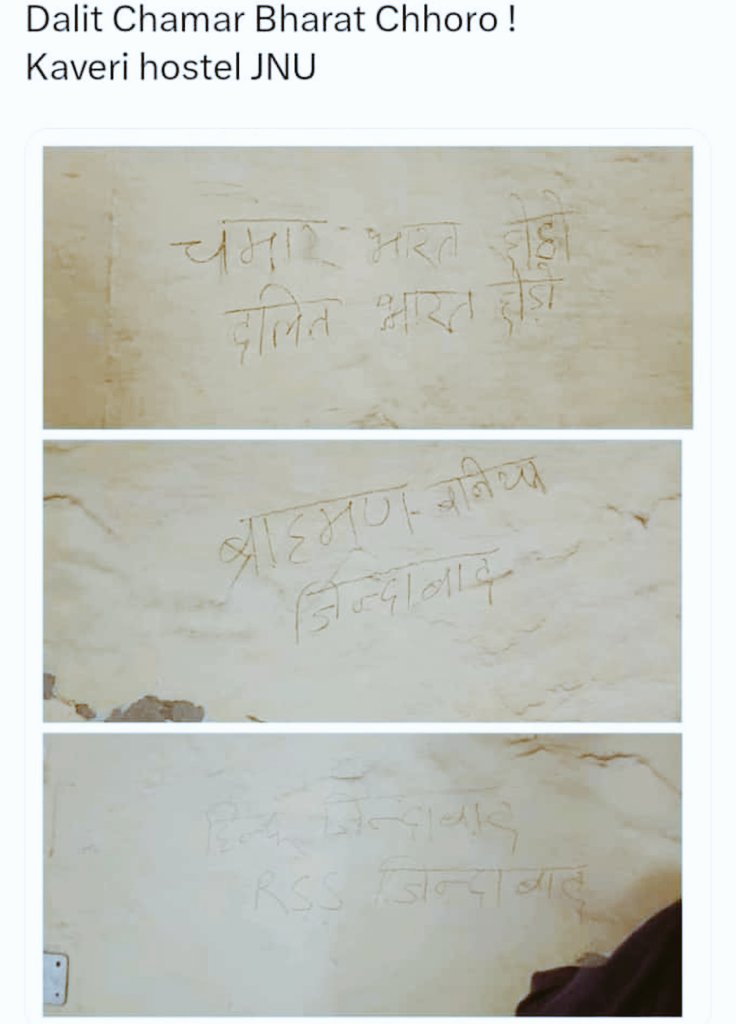 Dalit Chamar Bharat Chhoro !
Kaveri hostel JNU
चमार भारत छोड़ो
दलित भारत छोड़ो
ब्राहमण-बनिया
जिन्दाबाद
हिन्दू जिन्दाबाद
RSS जिन्दाबाद